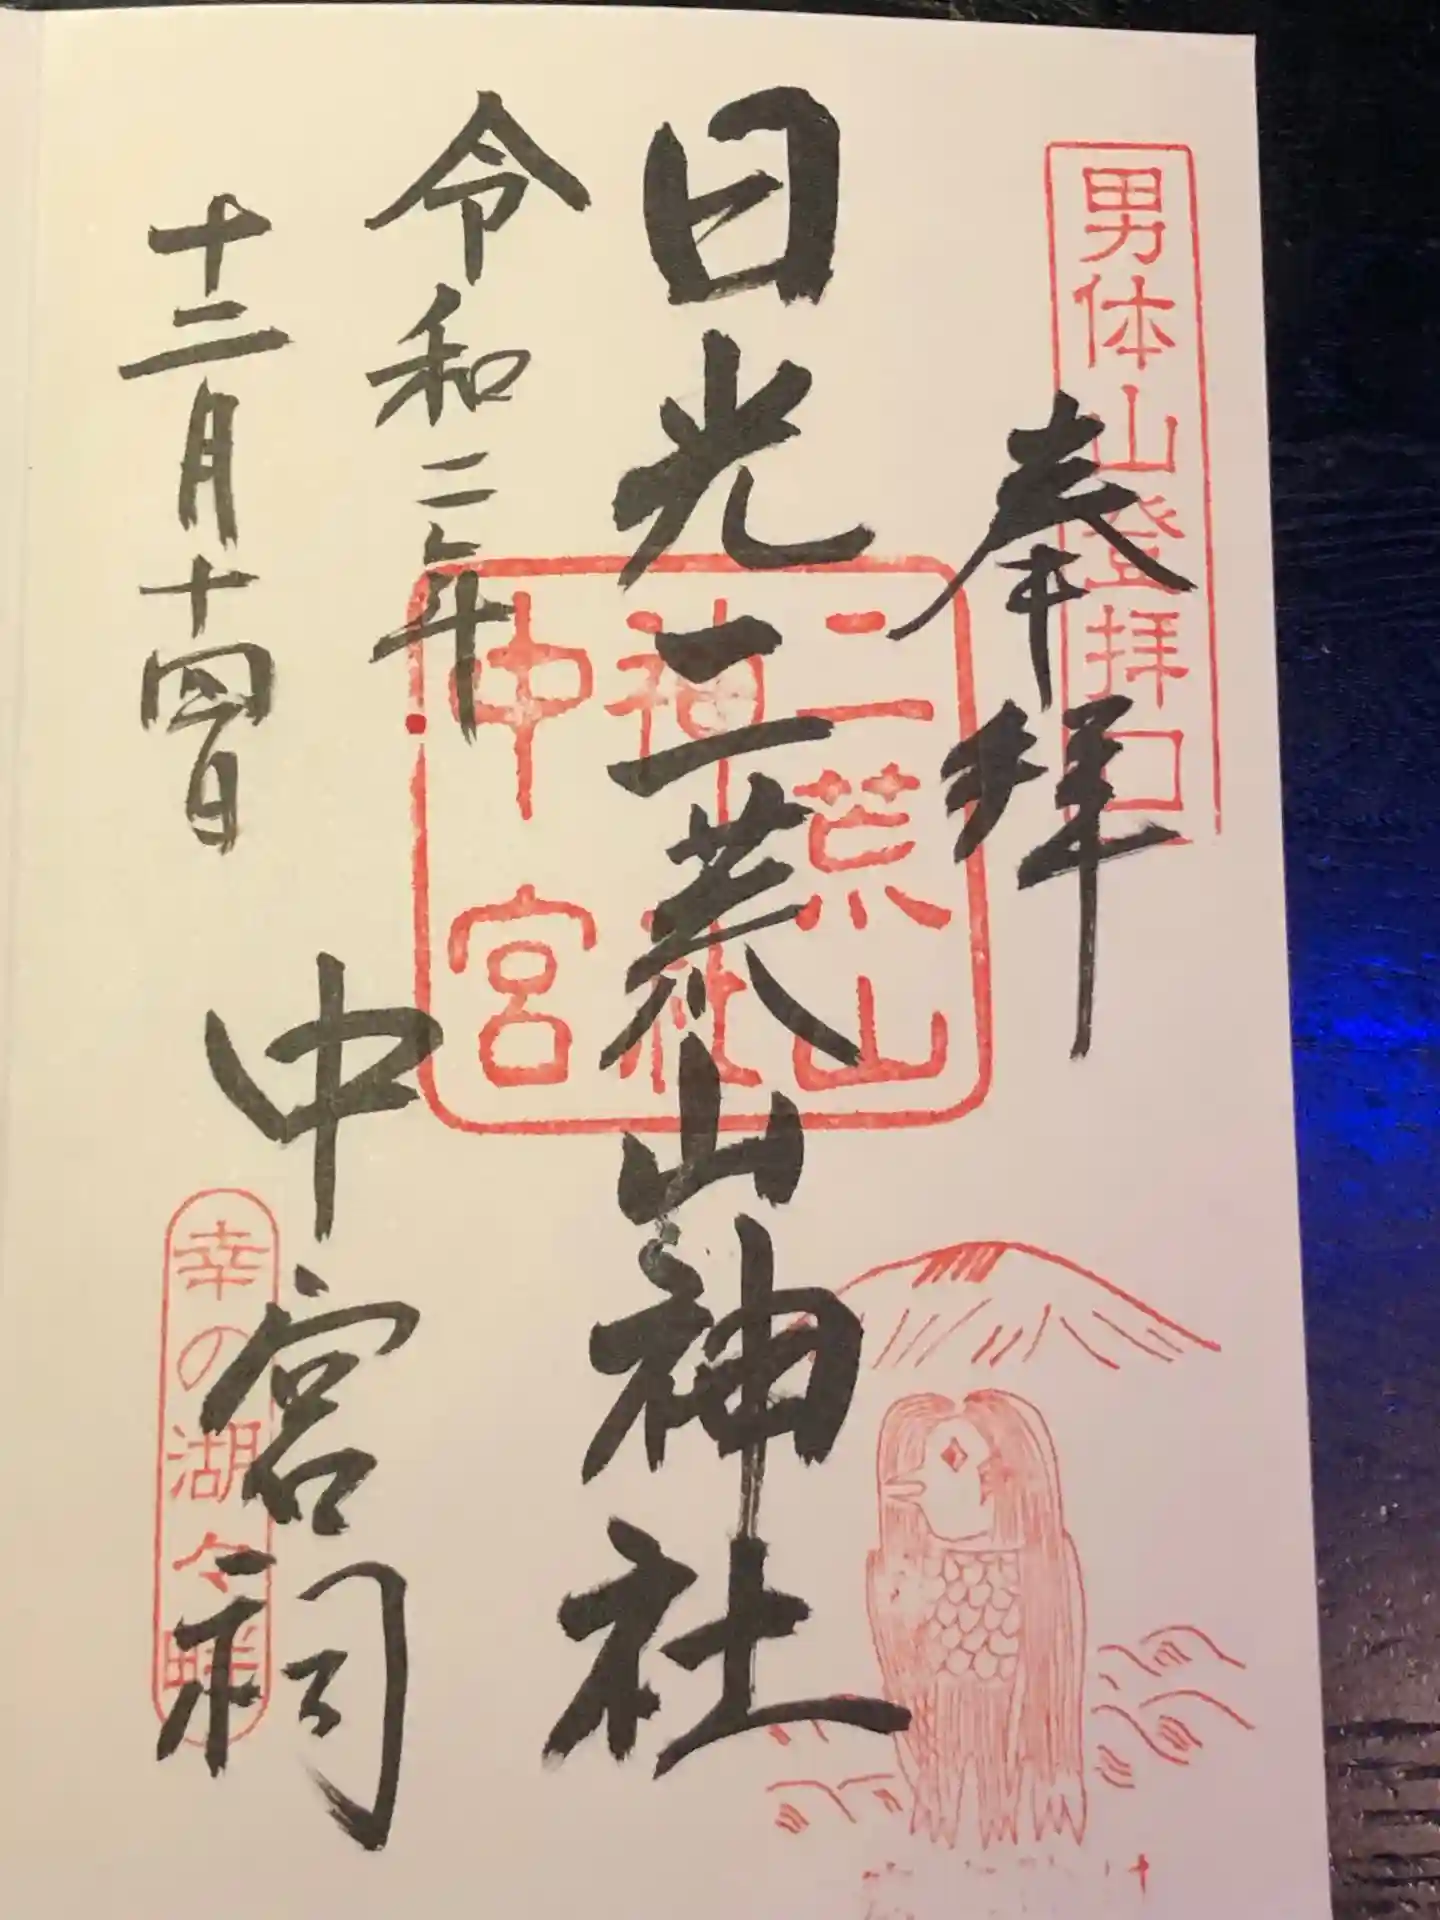 男体山登拝口
奉拝
日光二荒山神社
中宮祠
二荒山
神社
中宮
令和二年
十二月十四日
幸の湖